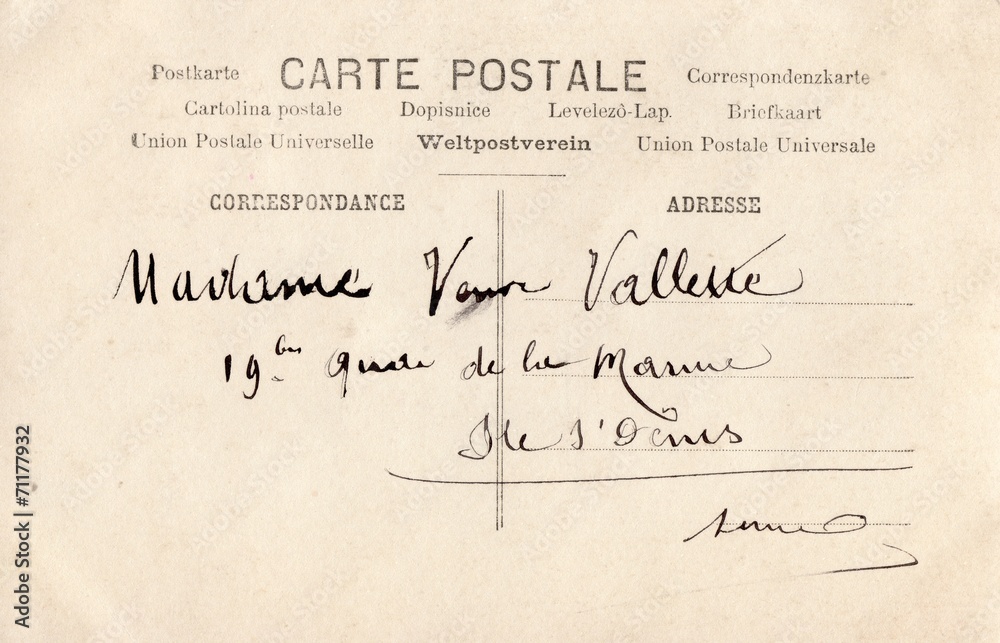 Postkarte CARTE POSTALE Correspondenzkarte
Cartolina postale Dopisnice Levelezö-Lap. Briefkaart
Union Postale Universelle Weltpostverein Union Postale Universale
CORRESPONDANCE ADRESSE
Madame Veuve Vallette
19 bis Quai de la Marine
Ile St Denis
Seine
Adobe Stock | #71177932